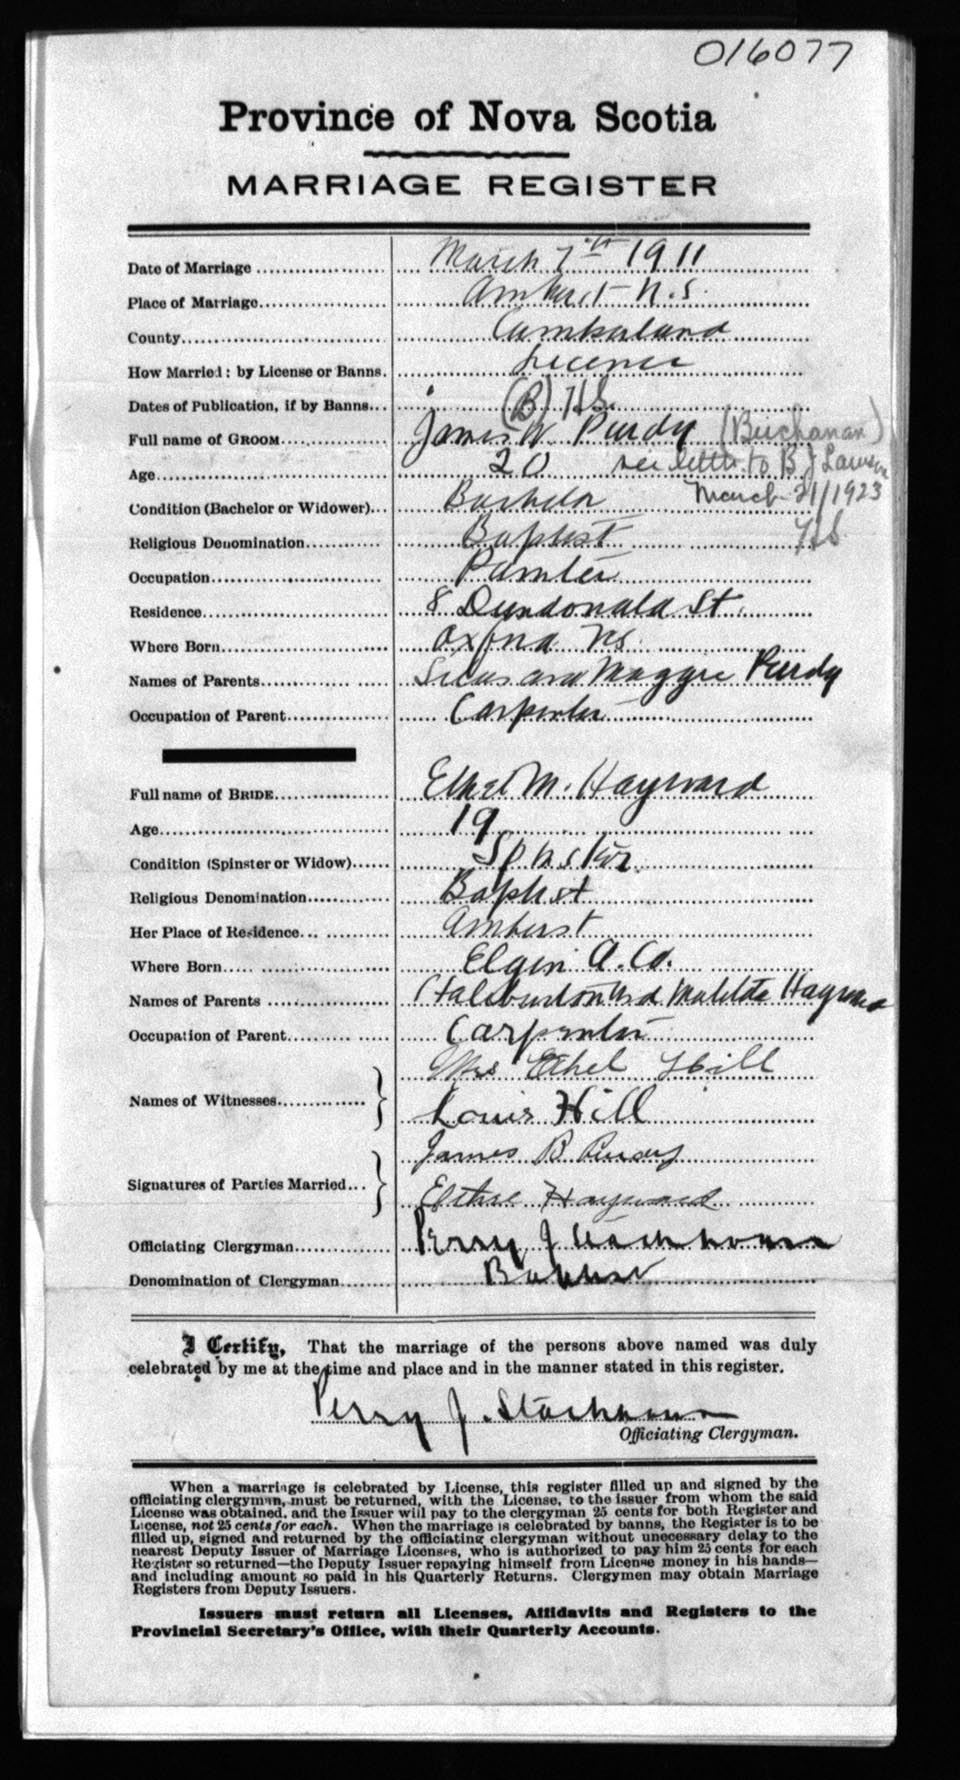 016077
Province of Nova Scotia
MARRIAGE REGISTER
Date of Marriage March 7th 1911
Place of Marriage Amherst N.S.
County Cumberland
How Married: by License or Banns. Licence
Dates of Publication, if by Banns (B) HS.
Full name of GROOM James W Purdy (Buchanan)
Age 20 see letter to B J Lawson
March 21/1923
Condition (Bachelor or Widower) Bachelor
HS
Religious Denomination Baptist
Occupation Painter
Residence 8 Dundonald St.
Where Born Oxford NS.
Names of Parents Silas and Maggie Purdy
Occupation of Parent Carpenter
Full name of BRIDE Ethel M. Hayward
Age 19
Condition (Spinster or Widow) Spinster
Religious Denomination Baptist
Her Place of Residence Amherst
Where Born Elgin A. Co.
Names of Parents Haliburton and Matilda Hayward
Occupation of Parent Carpenter
Names of Witnesses Mrs Ethel Hill
Louis Hill
Signatures of Parties Married James B Purdy
Hayward
Officiating Clergyman Perry J Stackhouse
Denomination of Clergyman Baptist
I Certify, That the marriage of the persons above named was duly
celebrated by me at the time and place and in the manner stated in this register.
Perry J. Stackhouse
Officiating Clergyman.
When a marriage is celebrated by License, this register filled up and signed by the
officiating clergyman, must be returned, with the License, to the issuer from whom the said
License was obtained, and the Issuer will pay to the clergyman 25 cents for both Register and
License, not 25 cents for each. When the marriage is celebrated by banns, the Register is to be
filled up, signed and returned by the officiating clergyman without unnecessary delay to the
nearest Deputy Issuer of Marriage Licenses, who is authorized to pay him 25 cents for each
Register so returned—the Deputy Issuer repaying himself from License money in his hands—
and including amount so paid in his Quarterly Returns. Clergymen may obtain Marriage
Registers from Deputy Issuers.
Issuers must return all Licenses, Affidavits and Registers to the
Provincial Secretary's Office, with their Quarterly Accounts.